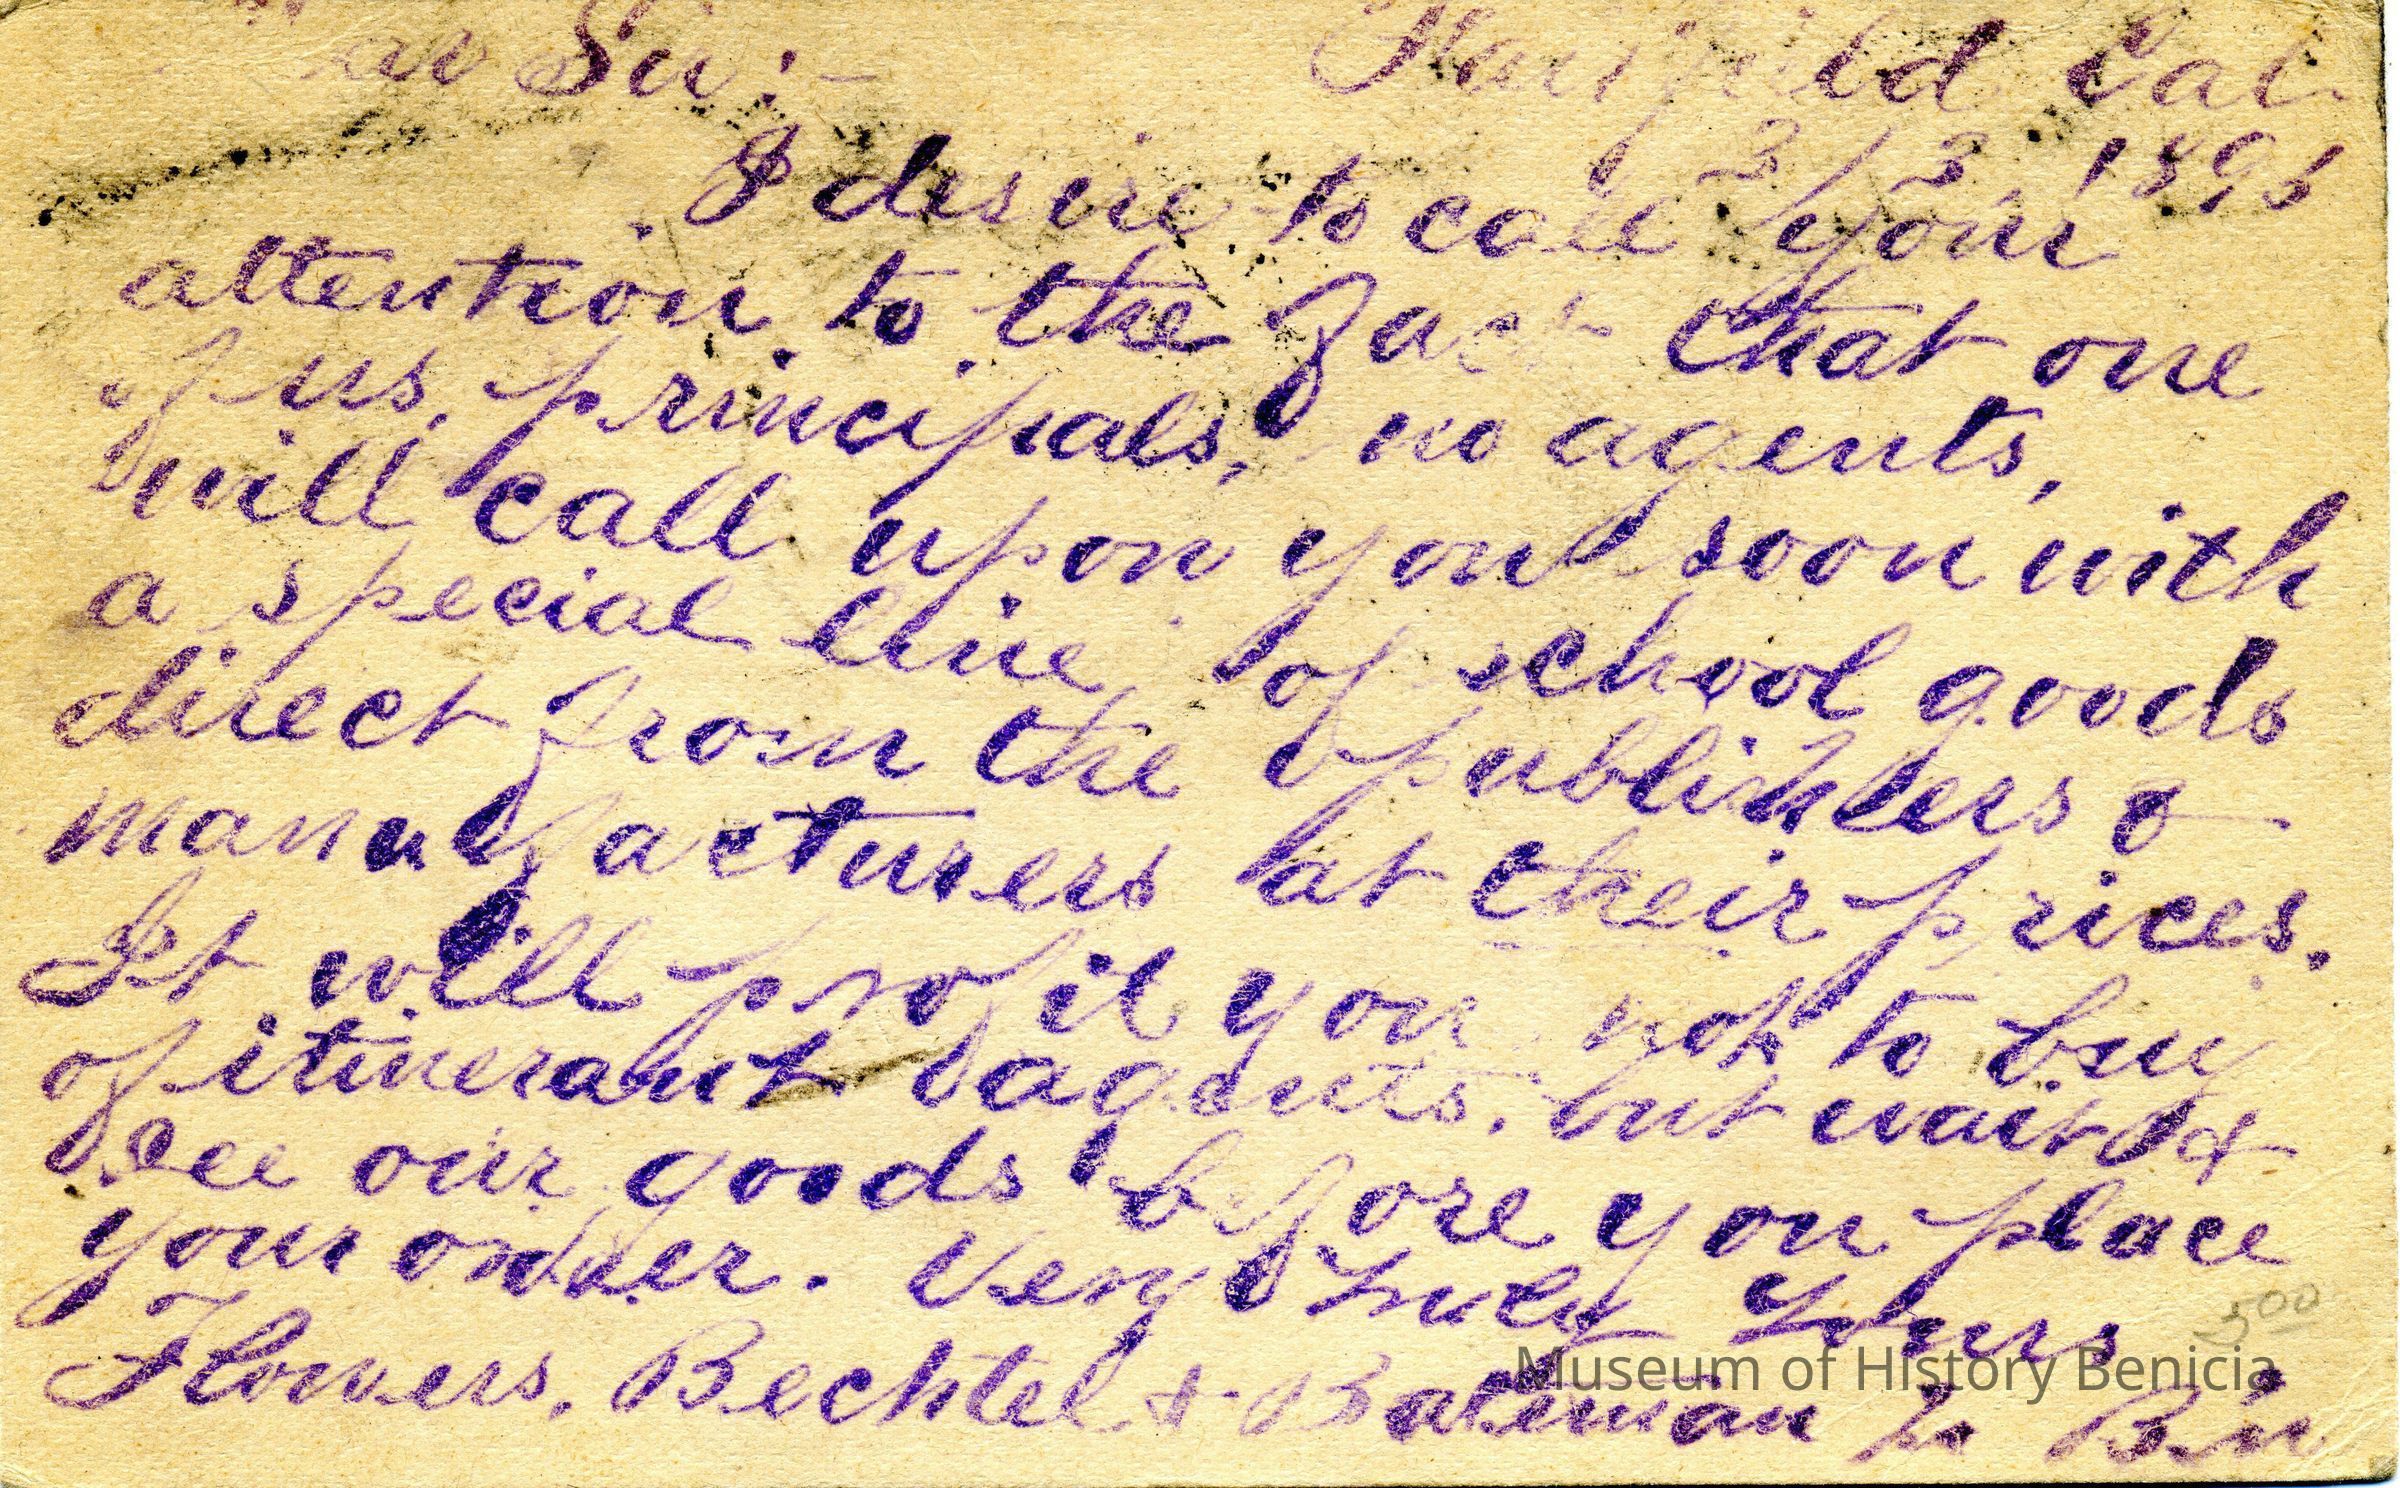 Sir:- Cal
3/3, 1893
I desire to call your
attention to the fact that one
of us, principals, no agents,
will call upon you soon with
a special line of school goods
direct from the publishers &
manufacturers at their prices.
It will profit you not to buy
of itinerant agents, but wait &
see our goods before you place
your order. Very Truly Yours
500
Flowers, Bechtel & Bateman
Museum of History Benicia